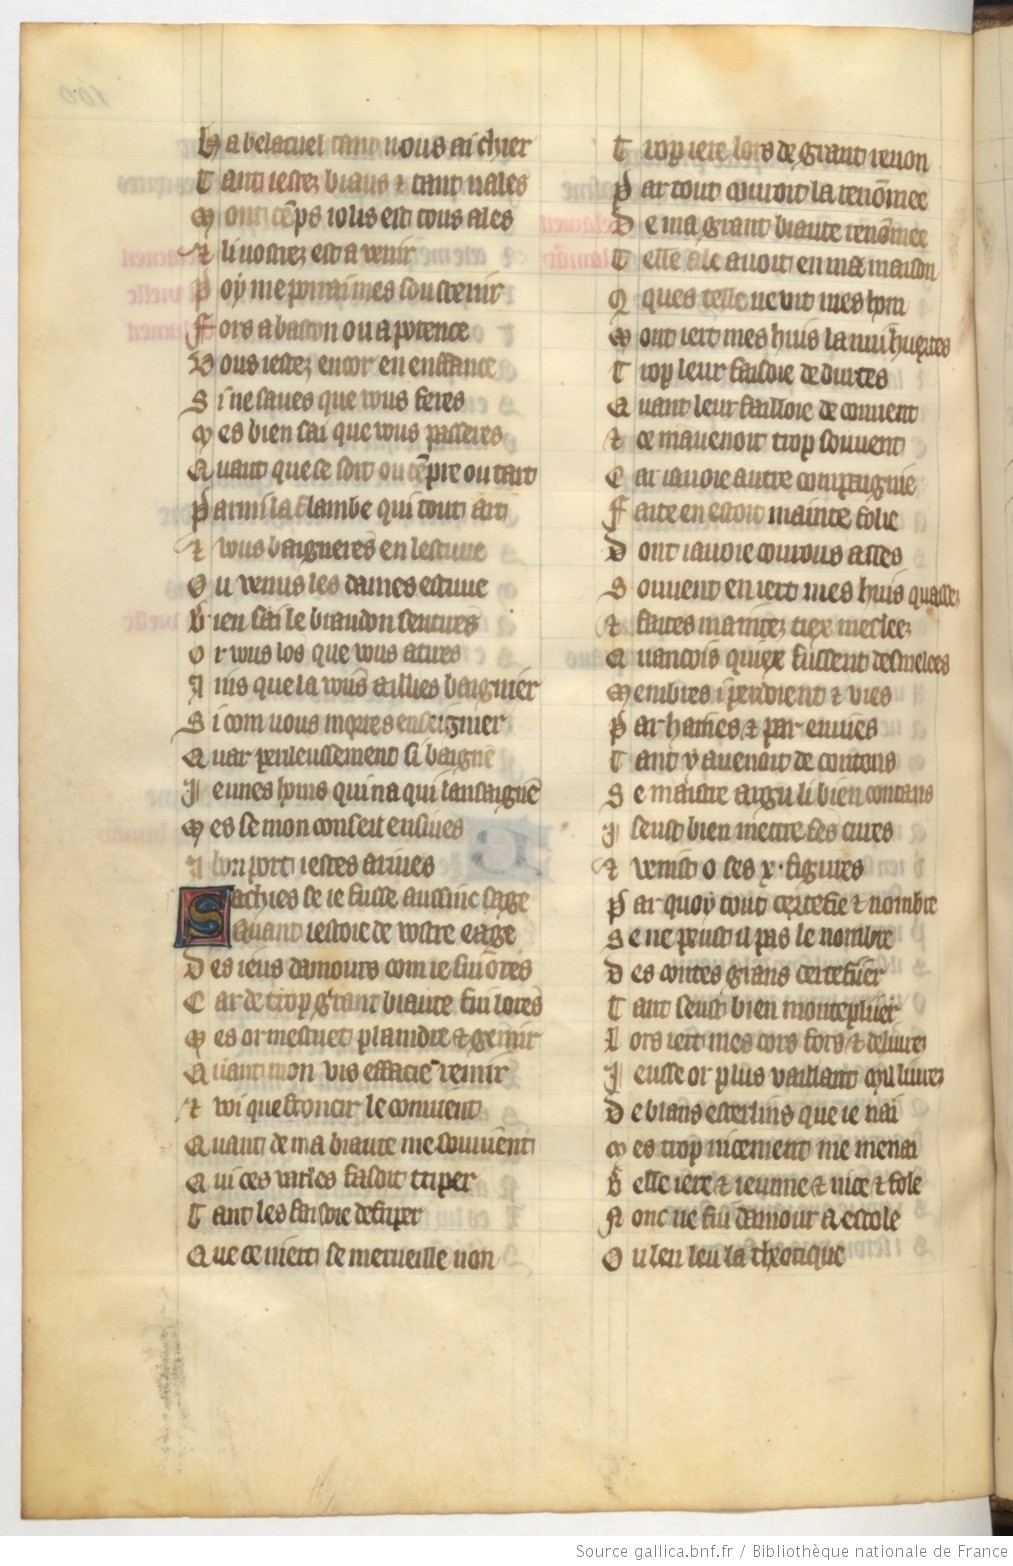 Ha belacuel tant vous ai chier
Tant iestez biaus & tant vales
Mont tēps iolis est tous ales
Et li vostrez est a venir
Poy me porrai mes soustenir
Fors a baston ou a potence
Vous iestez encor en enffance
Si ne saves que vous feres
Mes bien sai que vous passeres
Quant que ce soit ou tēpre ou tart
Parmi la flambe qui tout art
Et vous baigneres en lestuve
Ou venus les dames estuve
Bien sai le brandon sentires
Or vous los que vous atires
Ains que la vous aillies baignier
Si com vous morres enseignier
Quar perileusement si baigne
Jeunes homs qui na qui lansaigne
Mes se mon conseil ensives
A bon port iestes arives
Sachies se ie fusse aussinc sage
Quant iestoie de vostre eage
Des ieus damours com ie sui ores
Car de trop grant biaute fui lores
Mes or mestuet plaindre & gemir
Quant mon vis effacie remir
Et voi que froncir le couvient
Quant de ma biaute me souvient
Qui ces varles faisoit triper
Tant les faisoie defriper
Que ce niert se merueille non
Trop iere lors de grant renon
Par tout couroit la renōmee
De ma grant biaute renōmee
Telle ale avoit en ma maison
Ques telle ne vit mes hom
Mout iert mes huis la nui hurtes
Trop leur faisoie de durtes
Quant leur failloie de couvent
Et ce mavenoit trop souvent
Car iavoie autre compaignie
Faite en estoit mainte folie
Dont iavoie courous asses
Souvent en iert mes huis quasses
Et faites maintez tiex meslees
Quancois quiex fussent desmelees
Membres i perdoient & vies
Par haines & par envies
Tant y avenoit de contens
Se maistre argu li bien contans
I seust bien mettre ses cures
Et venist o ses x. figures
Par quoy tout certefie & nombre
Se ne peust il pas le nombre
Des contes grans certefier
Tant seust bien monteplier
Lors iert mes cors fors & delivres
Jeusse or plus vaillant mil livres
De blans esterlins que ie nai
Mes trop nicement me menai
Belle iere & ieunne & nice & fole
Nonc ne fui damour a escole
Ou leu leu la theorique
Source gallica.bnf.fr / Bibliothèque nationale de France